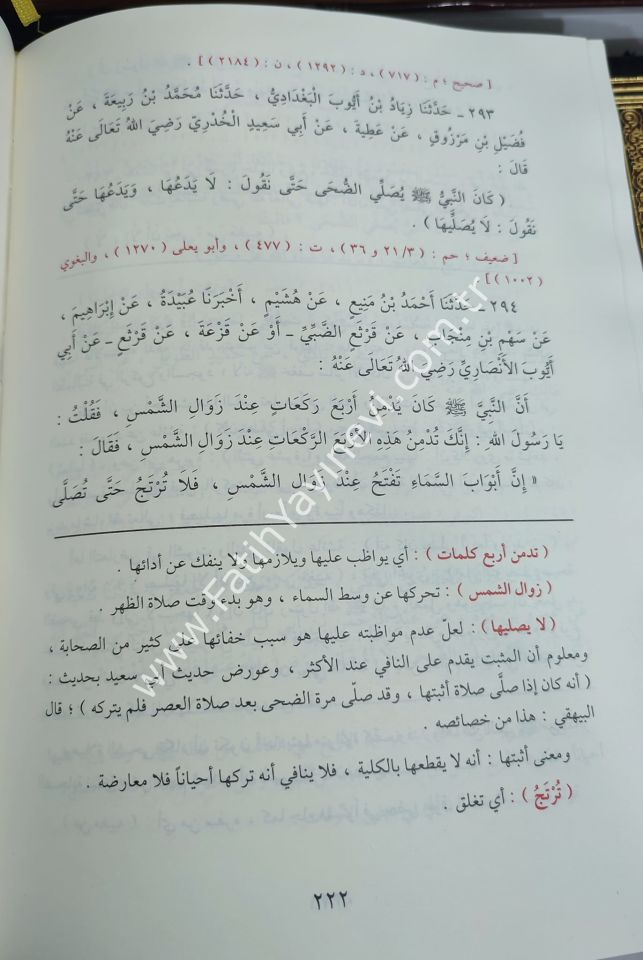 [ صحيح ؛ م : (٧١٧) ، د : (١٢٩٢) ، ن : (٢١٨٤) ] .
٢٩٣ـ حَدَّثَنَا زِيَادُ بْنُ أَيُّوبَ الْبَغْدَادِيُّ ، حَدَّثَنَا مُحَمَّدُ بْنُ رَبِيعَةَ ، عَنْ
فُضَيْلِ بْنِ مَرْزُوقٍ ، عَنْ عَطِيَّةَ ، عَنْ أَبِي سَعِيدٍ الْخُدْرِيِّ رَضِيَ اللهُ تَعَالَى عَنْهُ
قَالَ :
( كَانَ النَّبِيُّ ﷺ يُصَلِّي الضُّحَى حَتَّى نَقُولَ : لَا يَدَعُهَا ، وَيَدَعُهَا حَتَّى
نَقُولَ : لَا يُصَلِّيهَا ) .
[ ضعيف ؛ حم : (٢١/٣ و ٣٦) ، ت : (٤٧٧) ، وأبو يعلى (١٢٧٠) ، والبغوي
(١٠٠٢) ]
٢٩٤ـ حَدَّثَنَا أَحْمَدُ بْنُ مَنِيعٍ ، عَنْ هُشَيْمٍ ، أَخْبَرَنَا عُبَيْدَةُ ، عَنْ إِبْرَاهِيمَ ،
عَنْ سَهْمِ بْنِ مِنْجَابٍ ، عَنْ قَرْثَعٍ الضَّبِّيِّ ـ أَوْ عَنْ قَزْعَةَ ، عَنْ قَرْثَعٍ ـ عَنْ أَبِي
أَيُّوبَ الْأَنْصَارِيِّ رَضِيَ اللهُ تَعَالَى عَنْهُ :
أَنَّ النَّبِيَّ ﷺ كَانَ يُدْمِنُ أَرْبَعَ رَكَعَاتٍ عِنْدَ زَوَالِ الشَّمْسِ ، فَقُلْتُ :
يَا رَسُولَ اللهِ : إِنَّكَ تُدْمِنُ هَذِهِ الْأَرْبَعَ الرَّكْعَاتِ عِنْدَ زَوَالِ الشَّمْسِ ، فَقَالَ :
« إِنَّ أَبْوَابَ السَّمَاءِ تُفْتَحُ عِنْدَ زَوَالِ الشَّمْسِ ، فَلَا تُرْتَجُ حَتَّى تُصَلَّى
( تدمن أربع كلمات ) : أي يواظب عليها ويلازمها ولا ينفك عن أدائها .
( زوال الشمس ) : تحركها عن وسط السماء ، وهو بدء وقت صلاة الظهر .
( لا يصليها ) : لعلّ عدم مواظبته عليها هو سبب خفائها على كثير من الصحابة ،
ومعلوم أن المثبت يقدم على النافي عند الأكثر ، وعورض حديث أبي سعيد بحديث :
( أنه كان إذا صلَّى صلاة أثبتها ، وقد صلّى مرة الضحى بعد صلاة العصر فلم يتركه ) ؛ قال
البيهقي : هذا من خصائصه .
ومعنى أثبتها : أنه لا يقطعها بالكلية ، فلا ينافي أنه تركها أحياناً فلا معارضة .
( تُرْتَجُ ) : أي تغلق .
٢٢٢
www.FatihYayinevi.com.tr